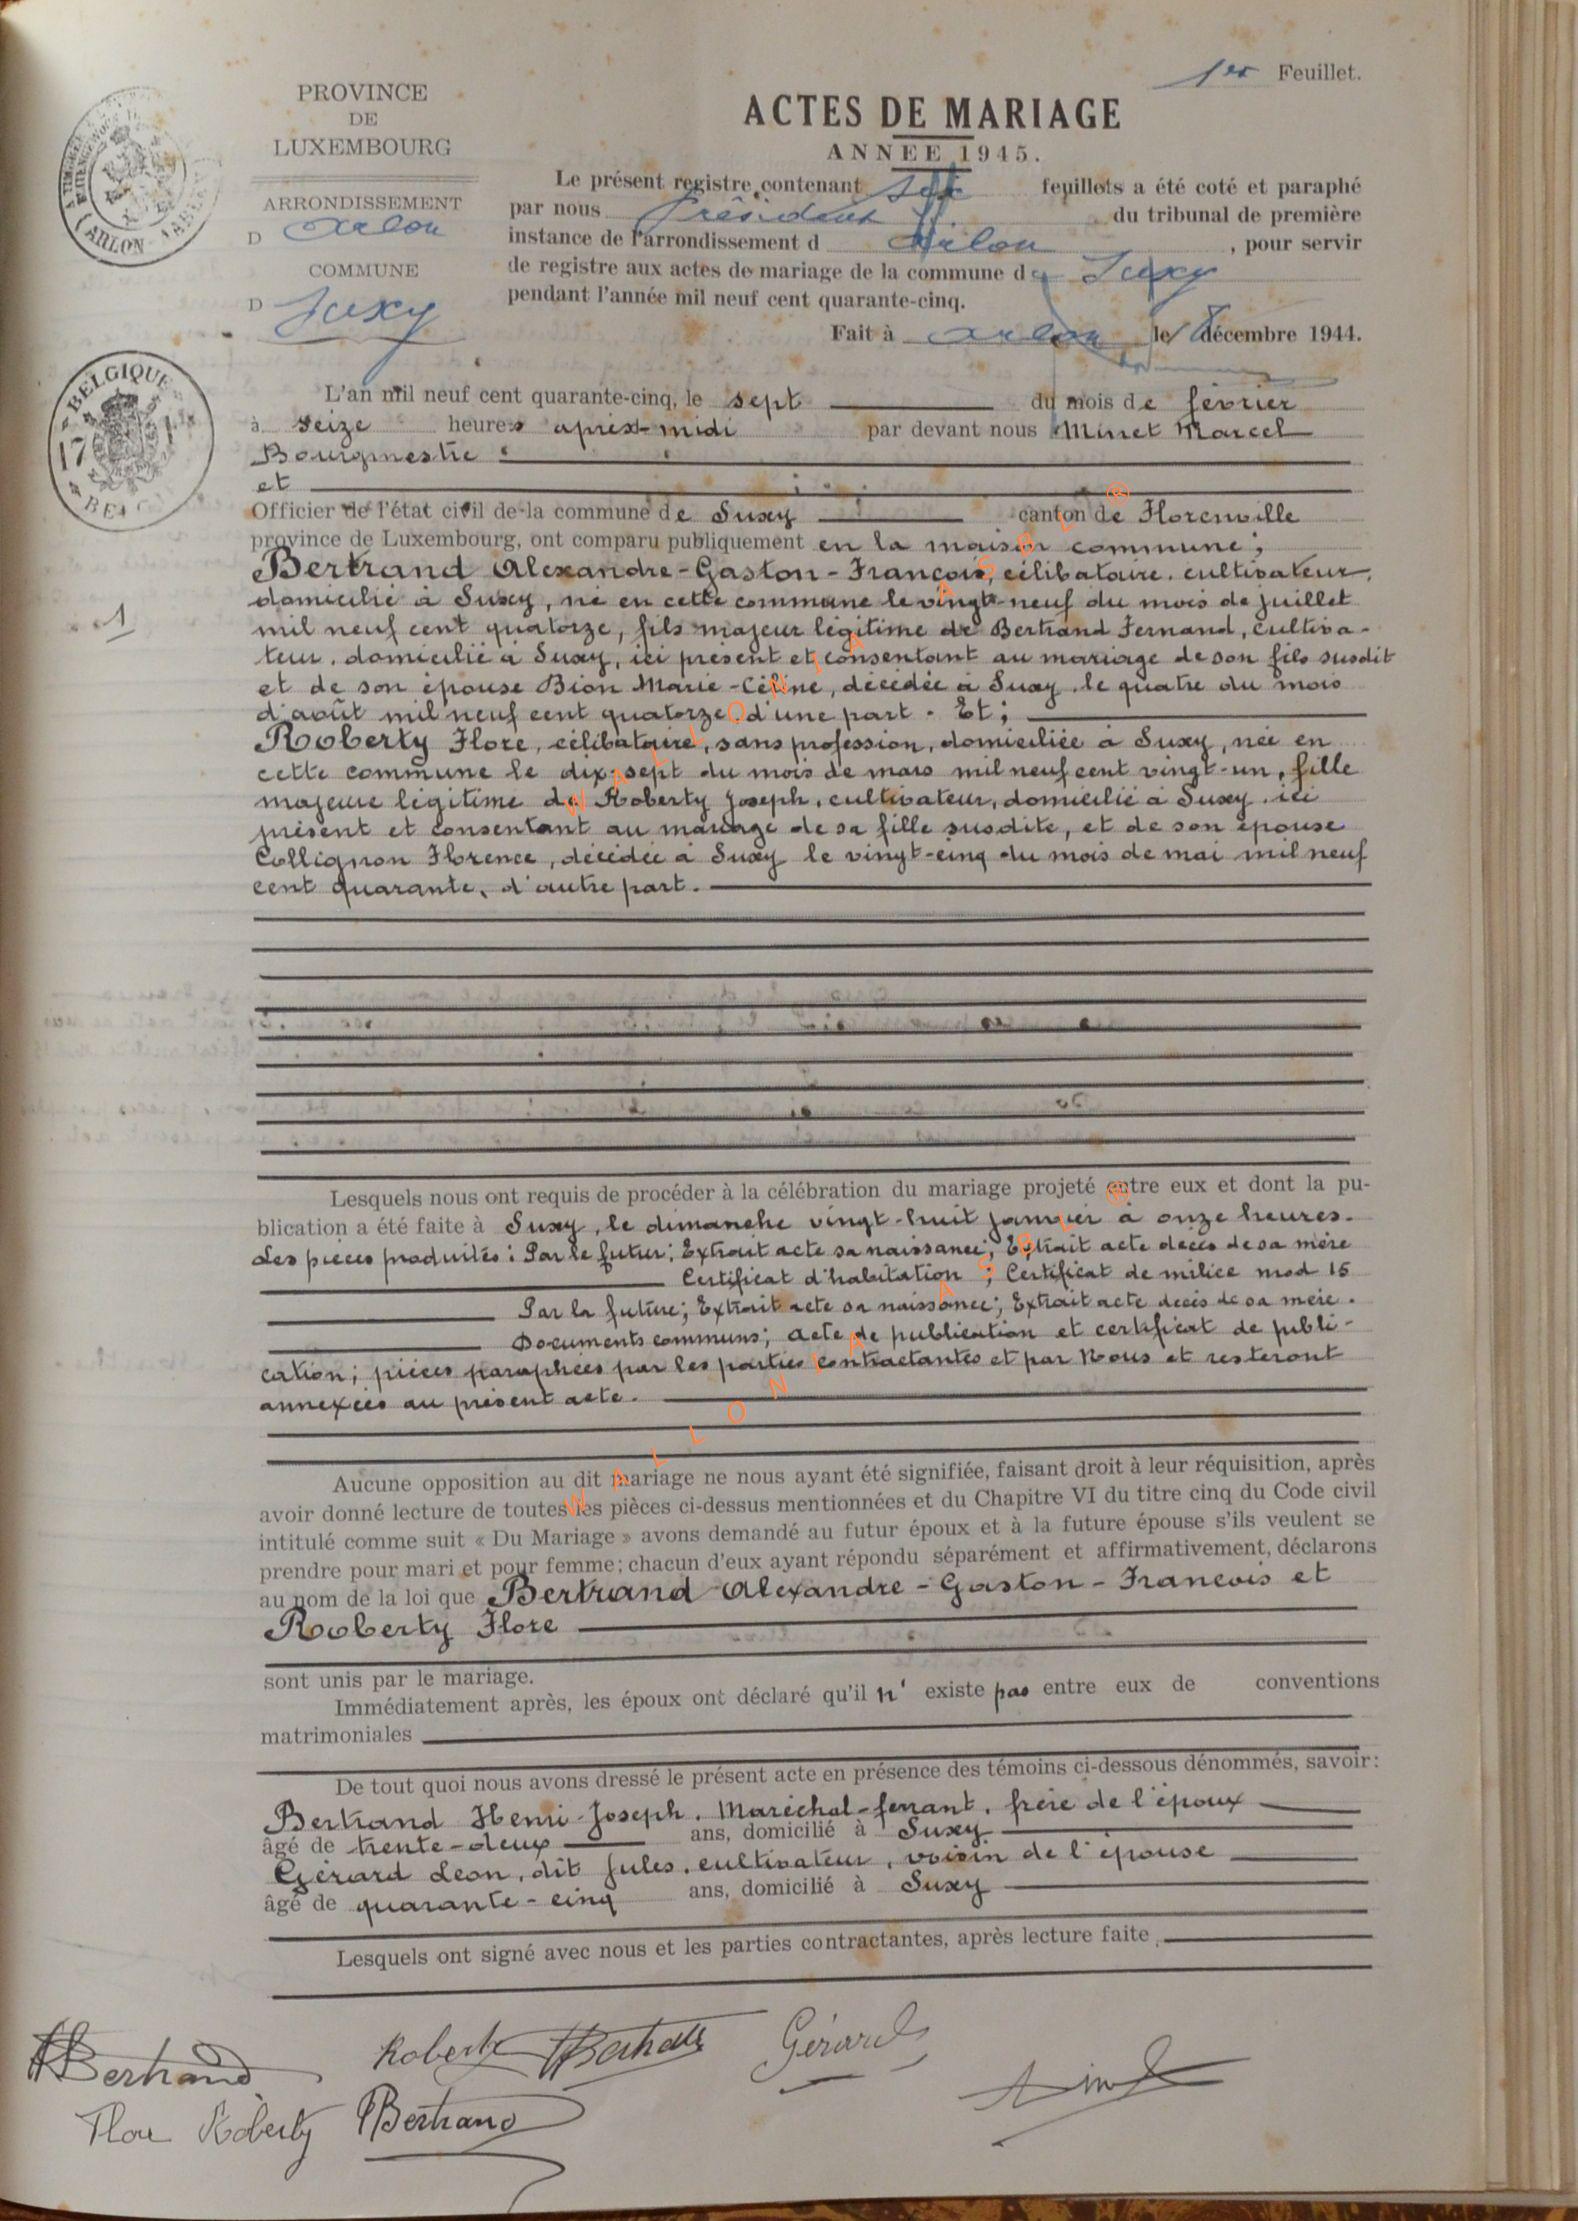 1er Feuillet.
PROVINCE
DE
LUXEMBOURG
ARRONDISSEMENT
D Arlon
COMMUNE
D Suxy
ACTES DE MARIAGE
ANNEE 1945.
Le présent registre contenant six feuillets a été coté et paraphé
par nous Président du tribunal de première
instance de l'arrondissement d Arlon, pour servir
de registre aux actes de mariage de la commune de Suxy
pendant l'année mil neuf cent quarante-cinq.
Fait à Arlon le 18 décembre 1944.
BELGIQUE
ARLON
1
L'an mil neuf cent quarante-cinq, le sept du mois de février
à seize heures après-midi par devant nous Minet Marcel
Bourgmestre
et
Officier de l'état civil de la commune de Suxy canton de Florenville
province de Luxembourg, ont comparu publiquement en la maison commune;
Bertrand Alexandre-Gaston-François, célibataire, cultivateur,
domicilié à Suxy, né en cette commune le vingt-neuf du mois de juillet
mil neuf cent quatorze, fils majeur légitime de Bertrand Fernand, cultiva-
teur, domicilié à Suxy, ici présent et consentant au mariage de son fils susdit
et de son épouse Bion Marie-Céline, décédée à Suxy, le quatre du mois
d'août mil neuf cent quatorze, d'une part. Et;
Roberty Flore, célibataire, sans profession, domiciliée à Suxy, née en
cette commune le dix-sept du mois de mars mil neuf cent vingt-un, fille
majeure légitime de Roberty Joseph, cultivateur, domicilié à Suxy, ici
présent et consentant au mariage de sa fille susdite, et de son épouse
Collignon Florence, décédée à Suxy le vingt-cinq du mois de mai mil neuf
cent quarante, d'autre part.
WALLONIA ASBL ®
Lesquels nous ont requis de procéder à la célébration du mariage projeté entre eux et dont la pu-
blication a été faite à Suxy, le dimanche vingt-huit janvier à onze heures.
Les pièces produites: Par le futur; Extrait acte sa naissance; Extrait acte décès de sa mère
Certificat d'habitation; Certificat de milice mod 15
Par la future; Extrait acte sa naissance; Extrait acte décès de sa mère.
Documents communs; Acte de publication et certificat de publi-
cation; pièces paraphées par les parties contractantes et par Nous et resteront
annexées au présent acte.
WALLONIA ASBL ®
Aucune opposition au dit mariage ne nous ayant été signifiée, faisant droit à leur réquisition, après
avoir donné lecture de toutes les pièces ci-dessus mentionnées et du Chapitre VI du titre cinq du Code civil
intitulé comme suit « Du Mariage » avons demandé au futur époux et à la future épouse s'ils veulent se
prendre pour mari et pour femme; chacun d'eux ayant répondu séparément et affirmativement, déclarons
au nom de la loi que Bertrand Alexandre-Gaston-François et
Roberty Flore
sont unis par le mariage.
Immédiatement après, les époux ont déclaré qu'il n' existe pas entre eux de conventions
matrimoniales
De tout quoi nous avons dressé le présent acte en présence des témoins ci-dessous dénommés, savoir:
Bertrand Henri-Joseph, Maréchal-ferrant, frère de l'époux
âgé de trente-deux ans, domicilié à Suxy
Gérard Léon, dit Jules, cultivateur, voisin de l'épouse
âgé de quarante-cinq ans, domicilié à Suxy
Lesquels ont signé avec nous et les parties contractantes, après lecture faite,
ABertrand Roberty HBertrand Gérard
Flore Roberty FBertrand